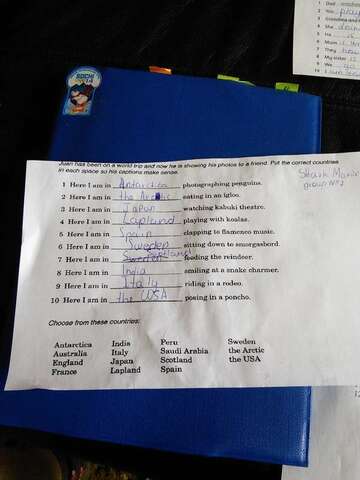 1 Dad
2 You
3 Grandma and
4 She
5 He is
6 Mum is
7 They
8 My sister is
9 We
10
SOCHI
Juan has been on a world trip and now he is showing his photos to a friend. Put the correct countries
in each space so his captions make sense.
1 Here I am in Antarctica photographing penguins.
2 Here I am in the Arctic eating in an igloo.
3 Here I am in Japan watching kabuki theatre.
4 Here I am in Lapland playing with koalas.
5 Here I am in Spain clapping to flamenco music.
6 Here I am in Sweden sitting down to smorgasbord.
7 Here I am in Scotland feeding the reindeer.
8 Here I am in India smiling at a snake charmer.
9 Here I am in Italy riding in a rodeo.
10 Here I am in the USA posing in a poncho.
Maria
group №2
Choose from these countries:
Antarctica India Peru Sweden
Australia Italy Saudi Arabia the Arctic
England Japan Scotland the USA
France Lapland Spain